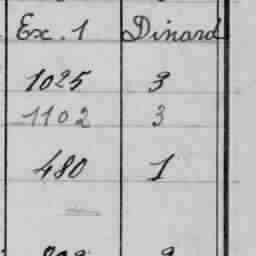 Ex. 1 Dinard
1025 3
1102 3
480 1